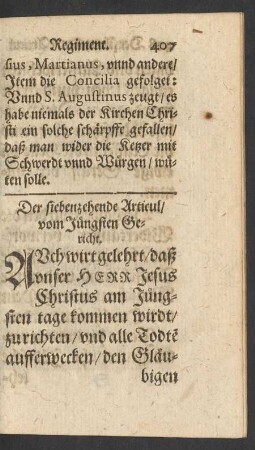 Regiment. 407
sius, Martianus, vnnd andere/
Jtem die Concilia gefolget:
Vnnd S. Augustinus zeugt/es
habe niemals der Kirchen Chri-
sti ein solche schärpffe gefallen/
daß man wider die Ketzer mit
Schwerdt vnnd Würgen/wü-
ten solle.
Der siebenzehende Articul/
vom Jüngsten Ge-
richt.
AVch wirt gelehrt/daß
vnser HERR Jesus
Christus am Jüng-
sten tage kommen wirdt/
zu richten/vnd alle Todtē
aufferwecken/den Gläu-
bigen